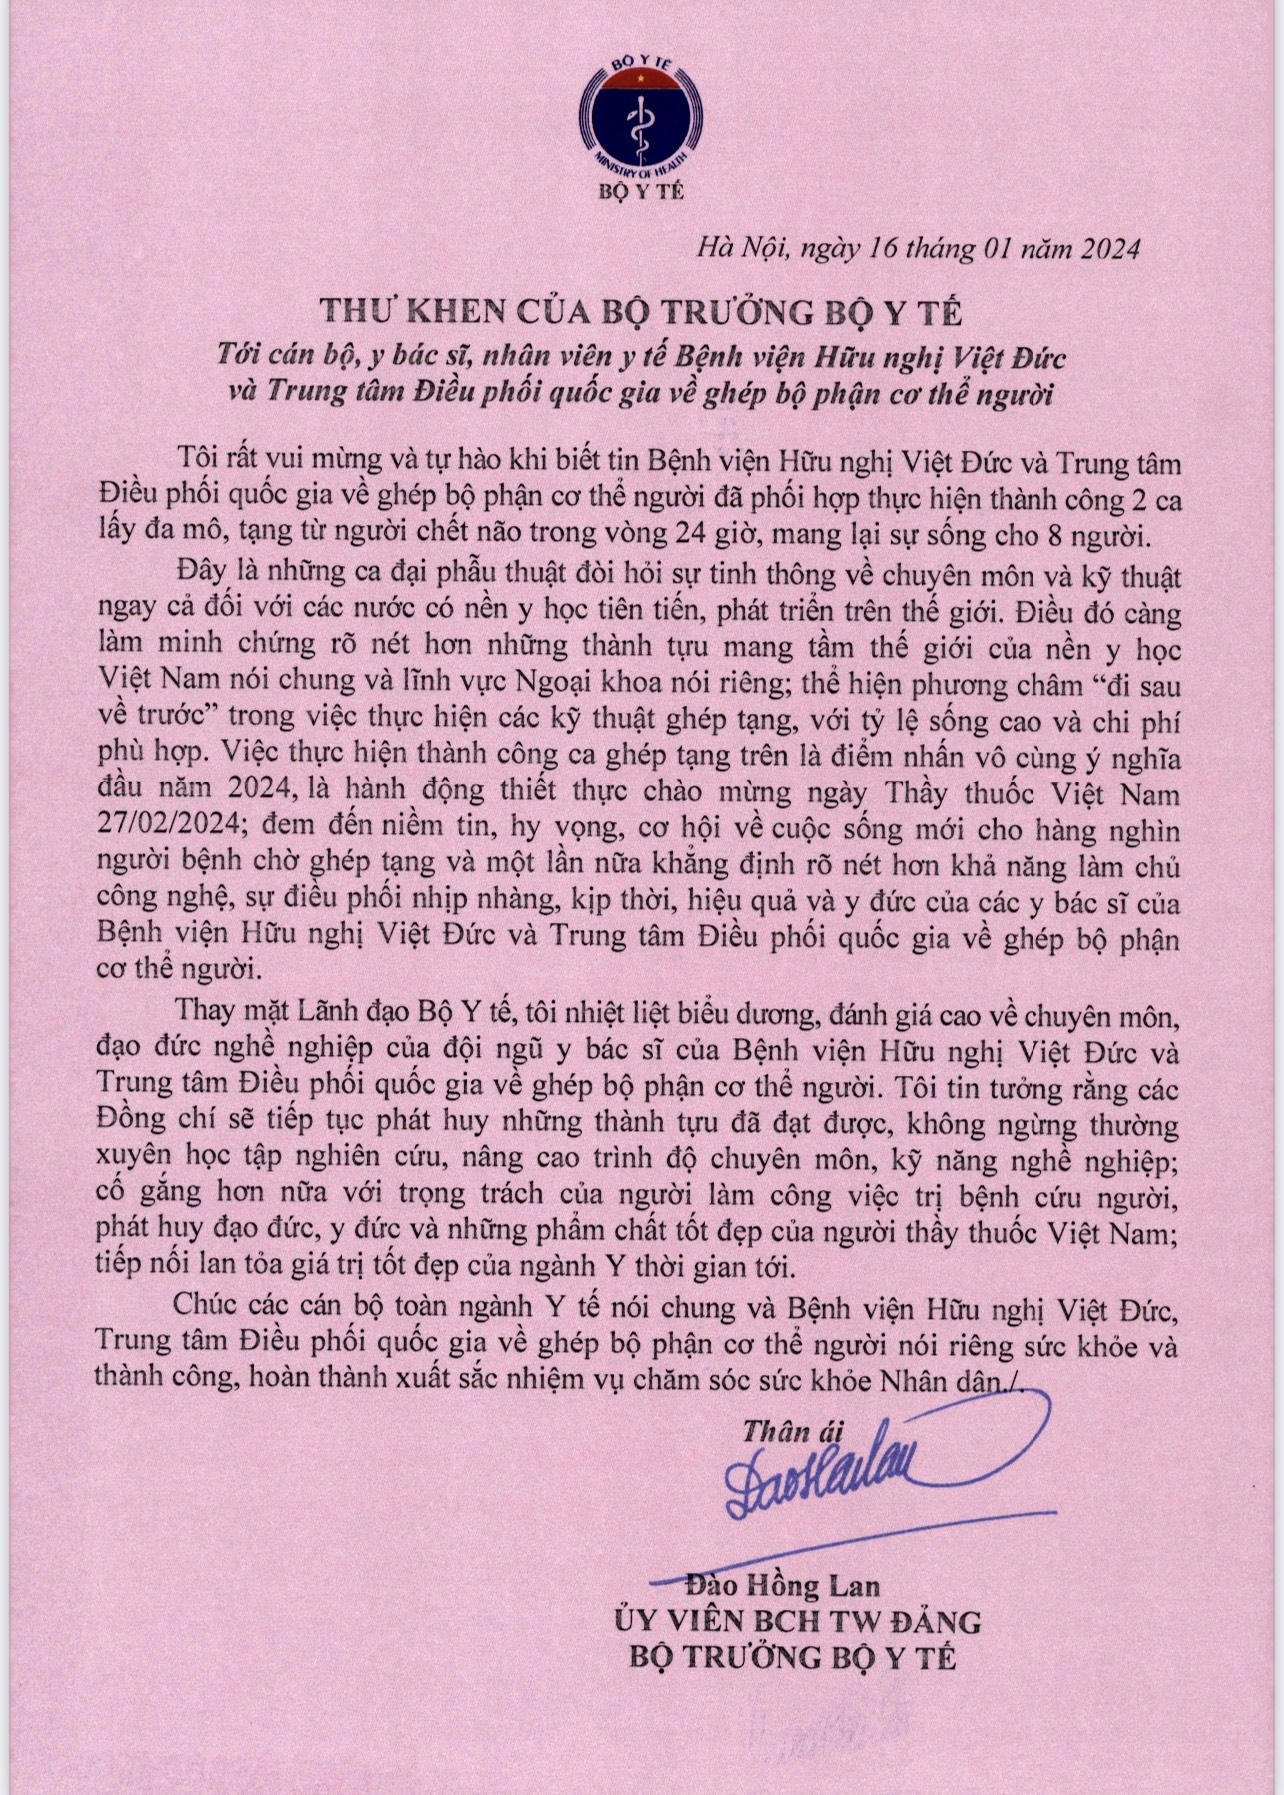 BỘ Y TẾ
MINISTRY OF HEALTH
BỘ Y TẾ
Hà Nội, ngày 16 tháng 01 năm 2024
THƯ KHEN CỦA BỘ TRƯỞNG BỘ Y TẾ
Tới cán bộ, y bác sĩ, nhân viên y tế Bệnh viện Hữu nghị Việt Đức
và Trung tâm Điều phối quốc gia về ghép bộ phận cơ thể người
Tôi rất vui mừng và tự hào khi biết tin Bệnh viện Hữu nghị Việt Đức và Trung tâm
Điều phối quốc gia về ghép bộ phận cơ thể người đã phối hợp thực hiện thành công 2 ca
lấy đa mô, tạng từ người chết não trong vòng 24 giờ, mang lại sự sống cho 8 người.
Đây là những ca đại phẫu thuật đòi hỏi sự tinh thông về chuyên môn và kỹ thuật
ngay cả đối với các nước có nền y học tiên tiến, phát triển trên thế giới. Điều đó càng
làm minh chứng rõ nét hơn những thành tựu mang tầm thế giới của nền y học
Việt Nam nói chung và lĩnh vực Ngoại khoa nói riêng; thể hiện phương châm “đi sau
về trước” trong việc thực hiện các kỹ thuật ghép tạng, với tỷ lệ sống cao và chi phí
phù hợp. Việc thực hiện thành công ca ghép tạng trên là điểm nhấn vô cùng ý nghĩa
đầu năm 2024, là hành động thiết thực chào mừng ngày Thầy thuốc Việt Nam
27/02/2024; đem đến niềm tin, hy vọng, cơ hội về cuộc sống mới cho hàng nghìn
người bệnh chờ ghép tạng và một lần nữa khẳng định rõ nét hơn khả năng làm chủ
công nghệ, sự điều phối nhịp nhàng, kịp thời, hiệu quả và y đức của các y bác sĩ của
Bệnh viện Hữu nghị Việt Đức và Trung tâm Điều phối quốc gia về ghép bộ phận
cơ thể người.
Thay mặt Lãnh đạo Bộ Y tế, tôi nhiệt liệt biểu dương, đánh giá cao về chuyên môn,
đạo đức nghề nghiệp của đội ngũ y bác sĩ của Bệnh viện Hữu nghị Việt Đức và
Trung tâm Điều phối quốc gia về ghép bộ phận cơ thể người. Tôi tin tưởng rằng các
Đồng chí sẽ tiếp tục phát huy những thành tựu đã đạt được, không ngừng thường
xuyên học tập nghiên cứu, nâng cao trình độ chuyên môn, kỹ năng nghề nghiệp;
cố gắng hơn nữa với trọng trách của người làm công việc trị bệnh cứu người,
phát huy đạo đức, y đức và những phẩm chất tốt đẹp của người thầy thuốc Việt Nam;
tiếp nối lan tỏa giá trị tốt đẹp của ngành Y thời gian tới.
Chúc các cán bộ toàn ngành Y tế nói chung và Bệnh viện Hữu nghị Việt Đức,
Trung tâm Điều phối quốc gia về ghép bộ phận cơ thể người nói riêng sức khỏe và
thành công, hoàn thành xuất sắc nhiệm vụ chăm sóc sức khỏe Nhân dân./.
Thân ái
DaoHonLan
Đào Hồng Lan
ỦY VIÊN BCH TW ĐẢNG
BỘ TRƯỞNG BỘ Y TẾ